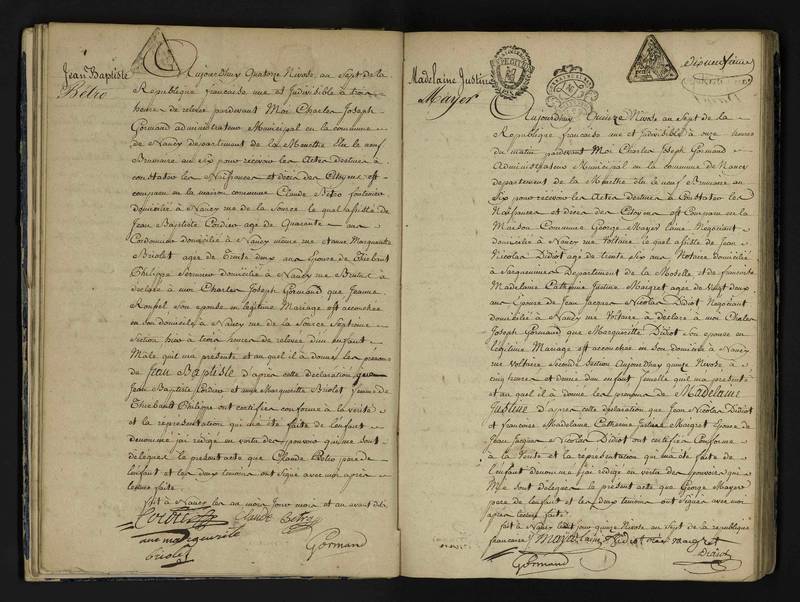 Jean Baptiste
Betro
Aujourdhuy Quatorze Nivose au Sept de la
Republique francaise une et Indivisible à trois
heures de relevée pardevant Moi Charles Joseph
Gormand administrateur Municipal en la commune
de Nancy departement de la Meurthe Elu le neuf
Brumaire an six pour recevoir les Actes destinés à
constater les Naissances et décès des Citoyens est
comparu en la maison commune Claude Betro
domicilié à Nancy rue de la Source lequel assisté de
Jean Baptiste Cordier age de Quarante ans
Cordonnier domicilié à Nancy même rue et anne Marguerite
Briolet agee de Trente deux ans Epouse de Thiebaut
Philippe domicilié à Nancy rue
déclaré à moi Charles Joseph Gormand que Jeanne
son epouse en legitime Mariage est accouchée
en son domicile à Nancy rue de la Source Septieme
Section hier à trois heures de relevée d'un enfant
Male qu'il m'a presenté et au quel il à donné les prenoms
de Jean Baptiste d'après cette déclaration que
Jean Baptiste Cordier et anne Marguerite Briolet femme de
Thiebault Philippe ont certifiée conforme à la verité
et la représentation qui m'a été faite de l'enfant
denommé jai rédigé en vertu des pouvoirs qui me sont
délégués le présent acte que Claude Betro pere de
l'enfant et les deux temoins ont Signé avec moi après
lecture faite
fait à Nancy les an mois jour mois et an avant dits
Claude Betro
anne marguerite
briolet
Gormand
Madelaine Justine
Mayer
Aujourdhuy Quinze Nivose au Sept de la
Republique francaise une et Indivisible à onze heures
du matin pardevant Moi Charles Joseph Gormand
Administrateur Municipal en la commune de Nancy
departement de la Meurthe élu le neuf Brumaire an
Six pour recevoir les Actes destinés à Constater les
Naissances et décès des Citoyens est Comparu en la
Maison Commune George Mayer Negociant
domicilié à Nancy rue Voltaire lequel assisté de Jean
Nicolas Didiot agé de trente six ans Notaire domicilié
à Sarguemines Departement de la Moselle et de francoise
Madelaine Catherine Justine Maigret agée de vingt deux
ans Epouse de Jean Jacques Nicolas Didiot Negociant
domiciliée à Nancy rue Voltaire à déclaré à moi Charles
Joseph Gormand que Marguerite Didiot son epouse en
legitime Mariage est accouchée en son domicile à Nancy
rue Voltaire Seconde Section Aujourdhuy quinze Nivose à
cinq heures et demie d'un enfant femelle qu'il m'a presenté
et au quel il à donné les prenoms de Madelaine
Justine d'apres cette déclaration que Jean Nicolas Didiot
et francoise Madelaine Catherine Justine Maigret Epouse de
Jean Jacques Nicolas Didiot ont certifiée Conforme
à la Verité et la représentation qui m'a été faite de
l'enfant denommé jai redigé en vertu des pouvoirs qui
Me sont délégués le présent acte que George Mayer
pere de l'enfant et les deux temoins ont signés avec moi
apres lecture faite
fait à Nancy ledit jour quinze Nivose au Sept de la republique
francaise
Didiot née maigret
Didiot
Gormand